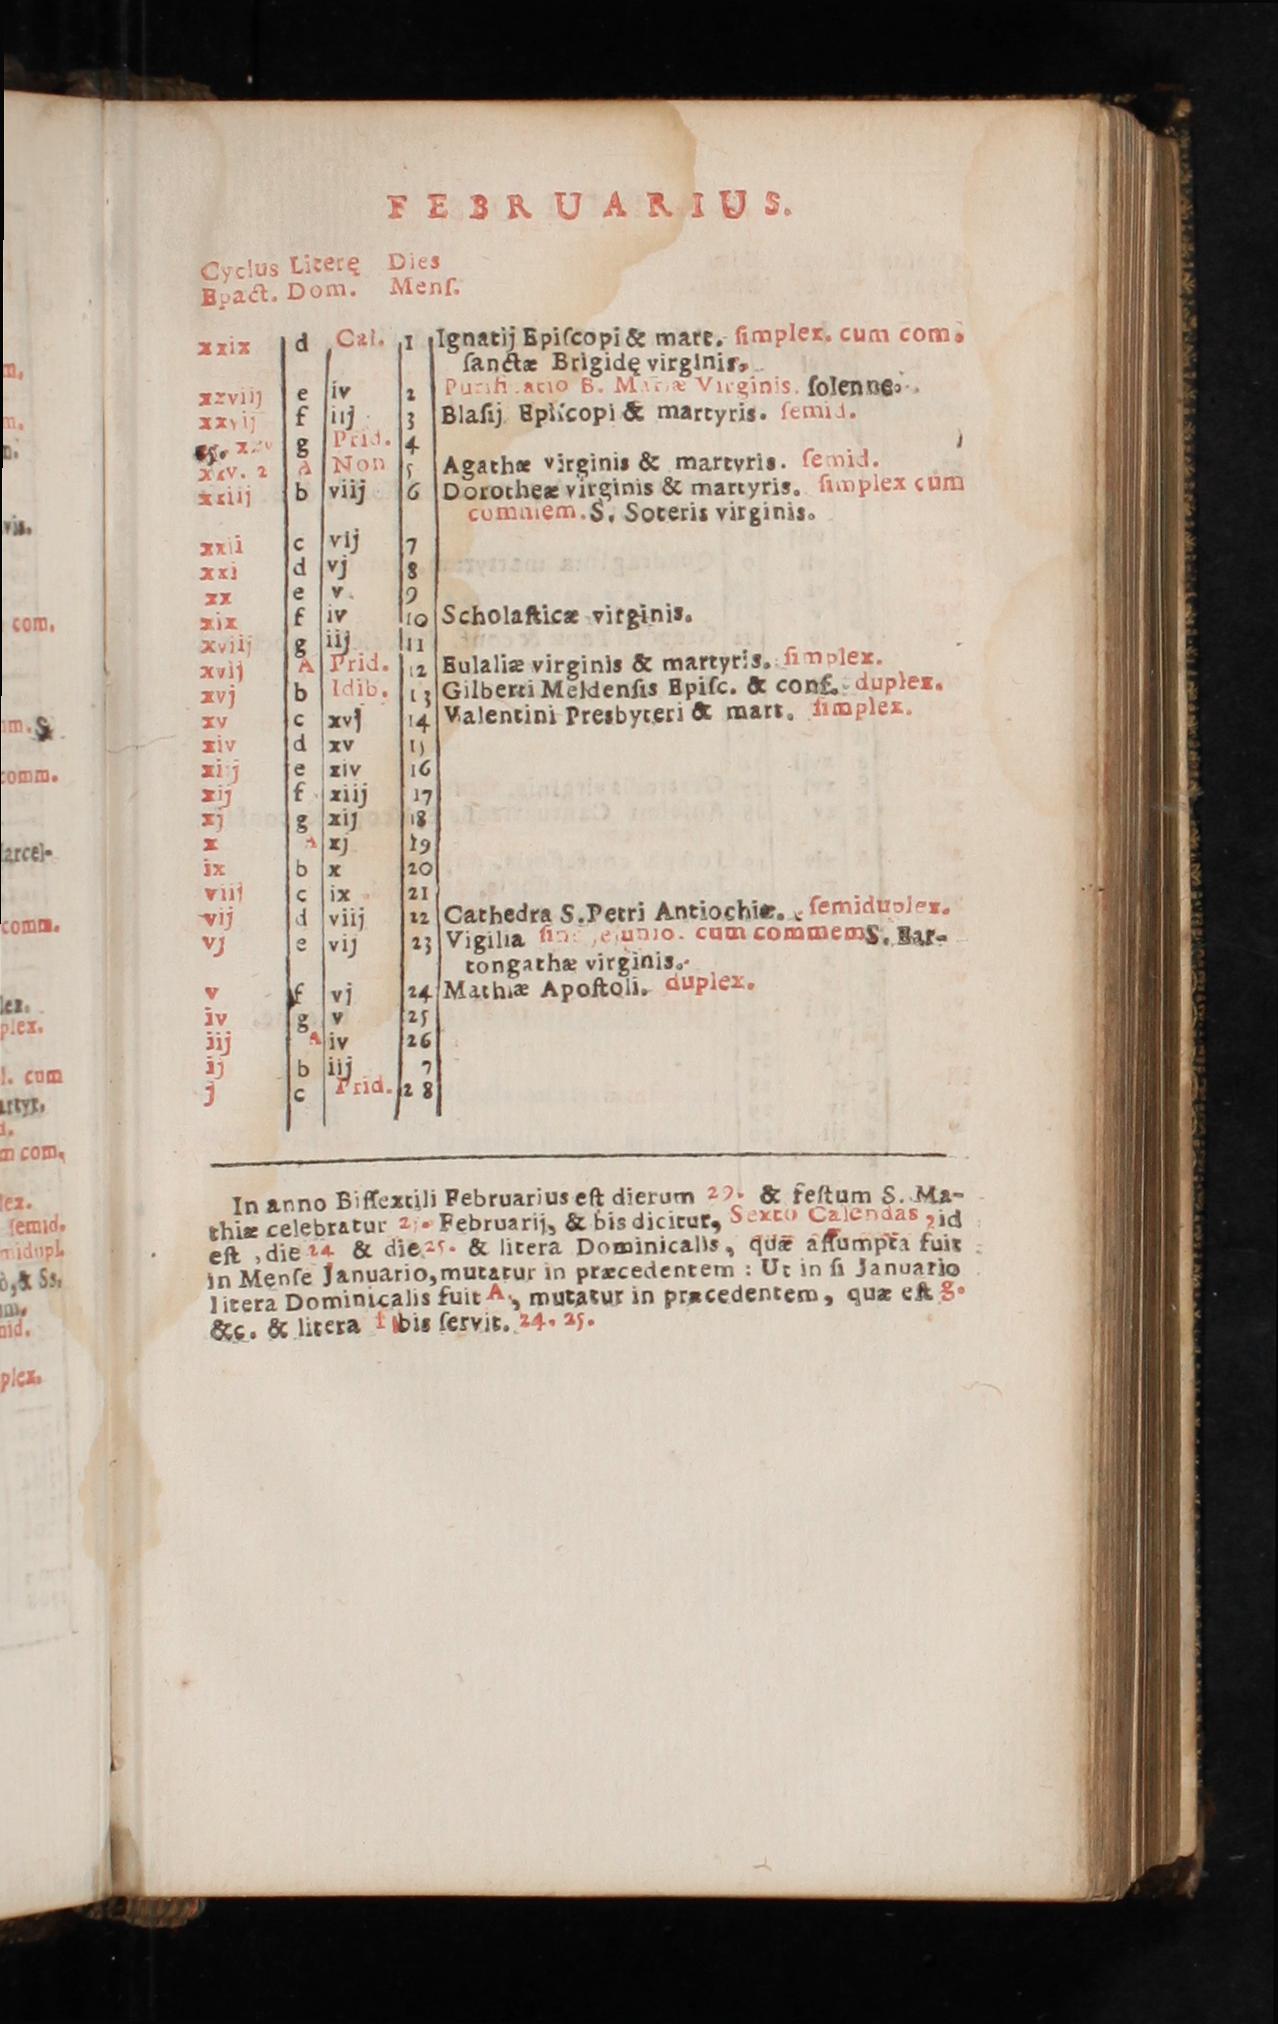 FEBRUARIUS.
Cyclus Literę Dies
Epact. Dom. Menſ.
xxix d Cal. 1 Ignatij Epiſcopi & mart. ſimplex. cum com.
ſanctæ Brigidę virginis.
xxviij e iv 2 Purificatio B. Mariæ Virginis. ſolenne.
xxvij f iij 3 Blaſij Epiſcopi & martyris. ſemid.
g Prid. 4
xxv. 2 A Non 5 Agathæ virginis & martyris. ſemid.
xxiij b viij 6 Dorotheæ virginis & martyris. ſimplex cum
commem. S. Soteris virginis.
xxii c vij 7
xxi d vj 8
xx e v. 9
xix f iv 10 Scholaſticæ virginis.
xviij g iij 11
xvij A Prid. 12 Eulaliæ virginis & martyris. ſimplex.
xvj b Idib. 13 Gilberti Meldenſis Epiſc. & conf. duplex.
xv c xvj 14 Valentini Presbyteri & mart. ſimplex.
xiv d xv 15
xiij e xiv 16
xij f xiij 17
xj g xij 18
x A xj 19
ix b x 20
viij c ix 21
vij d viij 22 Cathedra S. Petri Antiochiæ. ſemiduplex.
vj e vij 23 Vigilia ſine jejunio. cum commem S. Bar-
tongathæ virginis.
v f vj 24 Mathiæ Apoſtoli. duplex.
iv g v 25
iij A iv 26
ij b iij 7
j c Prid. 28
In anno Biſſextili Februarius eſt dierum 29. & feſtum S. Ma-
thiæ celebratur Februarij, & bis dicitur, Sexto Calendas, id
eſt, die 24 & die 25. & litera Dominicalis, quæ aſſumpta fuit
in Menſe Januario, mutatur in præcedentem : Ut in ſi Januario
litera Dominicalis fuit A., mutatur in præcedentem, quæ eſt g.
&c. & litera f bis ſervit. 24. 25.
com.
comm.
arcel-
comm.
lex.
plex.
l. cum
artyr.
m com.
lex.
ſemid.
midupl.
plex.